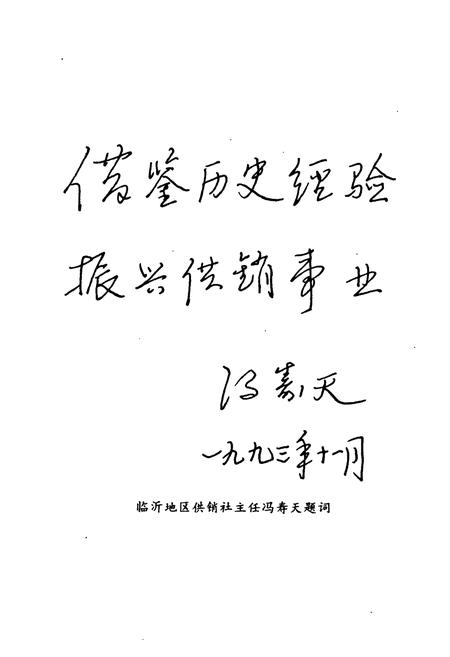 借鉴历史经验
振兴供销事业
冯寿天
一九九三年十一月
临沂地区供销社主任冯寿天题词